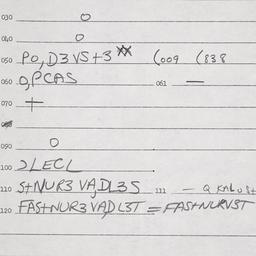 030 O
040 O
050 PO,D3VS+3 (009 (838
060 O,PCAS 061 —
070 +
090 O
100 2LECL
110 S+NUR3 VA,DL3S 111 — Q
120 FAS+NUR3 VA,DL3T = FAS+NURVST